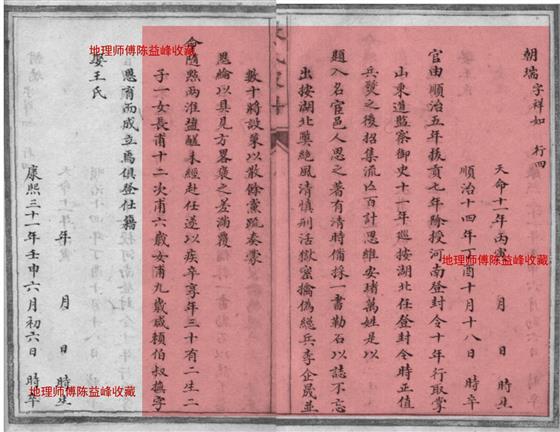 朝 字祥如 行四
天命十一年丙寅 月 日 時生
順治十四年丁酉十月十八日 時卒
官由順治五年拔貢七年除授河南登封令十年行取掌
山東道監察御史十一年巡按湖北任登封令時正值
兵燹之後招集流亡百計思維安堵萬姓是以
題入名宦邑人思之著有清時備採一書勒石以誌不忘
出按湖北絶風清慎刑活獄蜜擒偽總兵李企晟並
數十將設策以散餘黨疏奏蒙
恩綸以具見方畧褒之差滿覆
命隨點兩淮鹽醝未經赴任遂以疾卒享年三十有二生二
子一女長甫十二次甫六歲女甫九歲咸頼伯叔撫字
恩育而成立焉俱登仕籍
娶王氏
年 月 日 時生
康熙三十一年壬申六月初六日 時卒
地理师傅陈益峰收藏
地理师傅陈益峰收藏
地理师傅陈益峰收藏